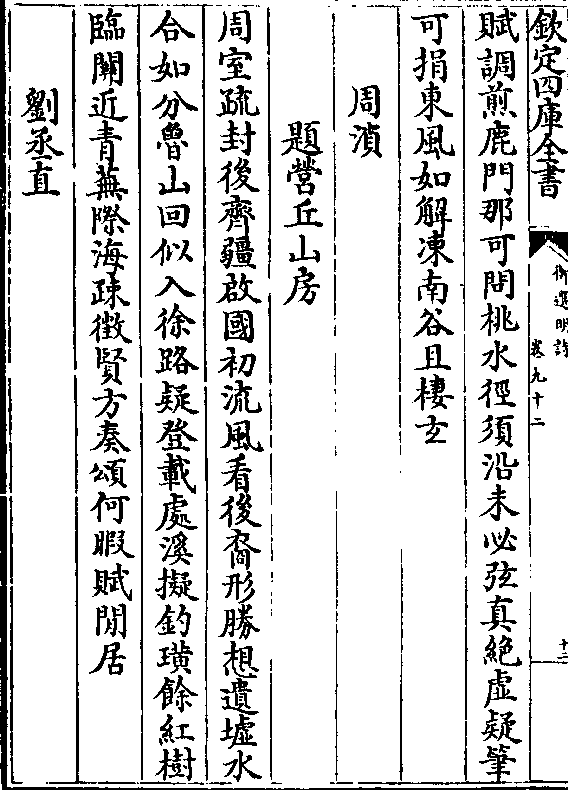 欽定四庫全書
御選明詩
卷九十二
十二
賦調煎鹿門那可問桃水徑須沿未必弦真絶虚疑筆
可捐東風如解凍南谷且棲玄
周湞
題營丘山房
周室疏封後齊疆啟國初流風看後裔形勝想遺墟水
合如分魯山回似入徐路疑登載處溪擬釣璜餘紅樹
臨關近青蕪際海疎徴賢方奏頌何暇賦閒居
劉丞直